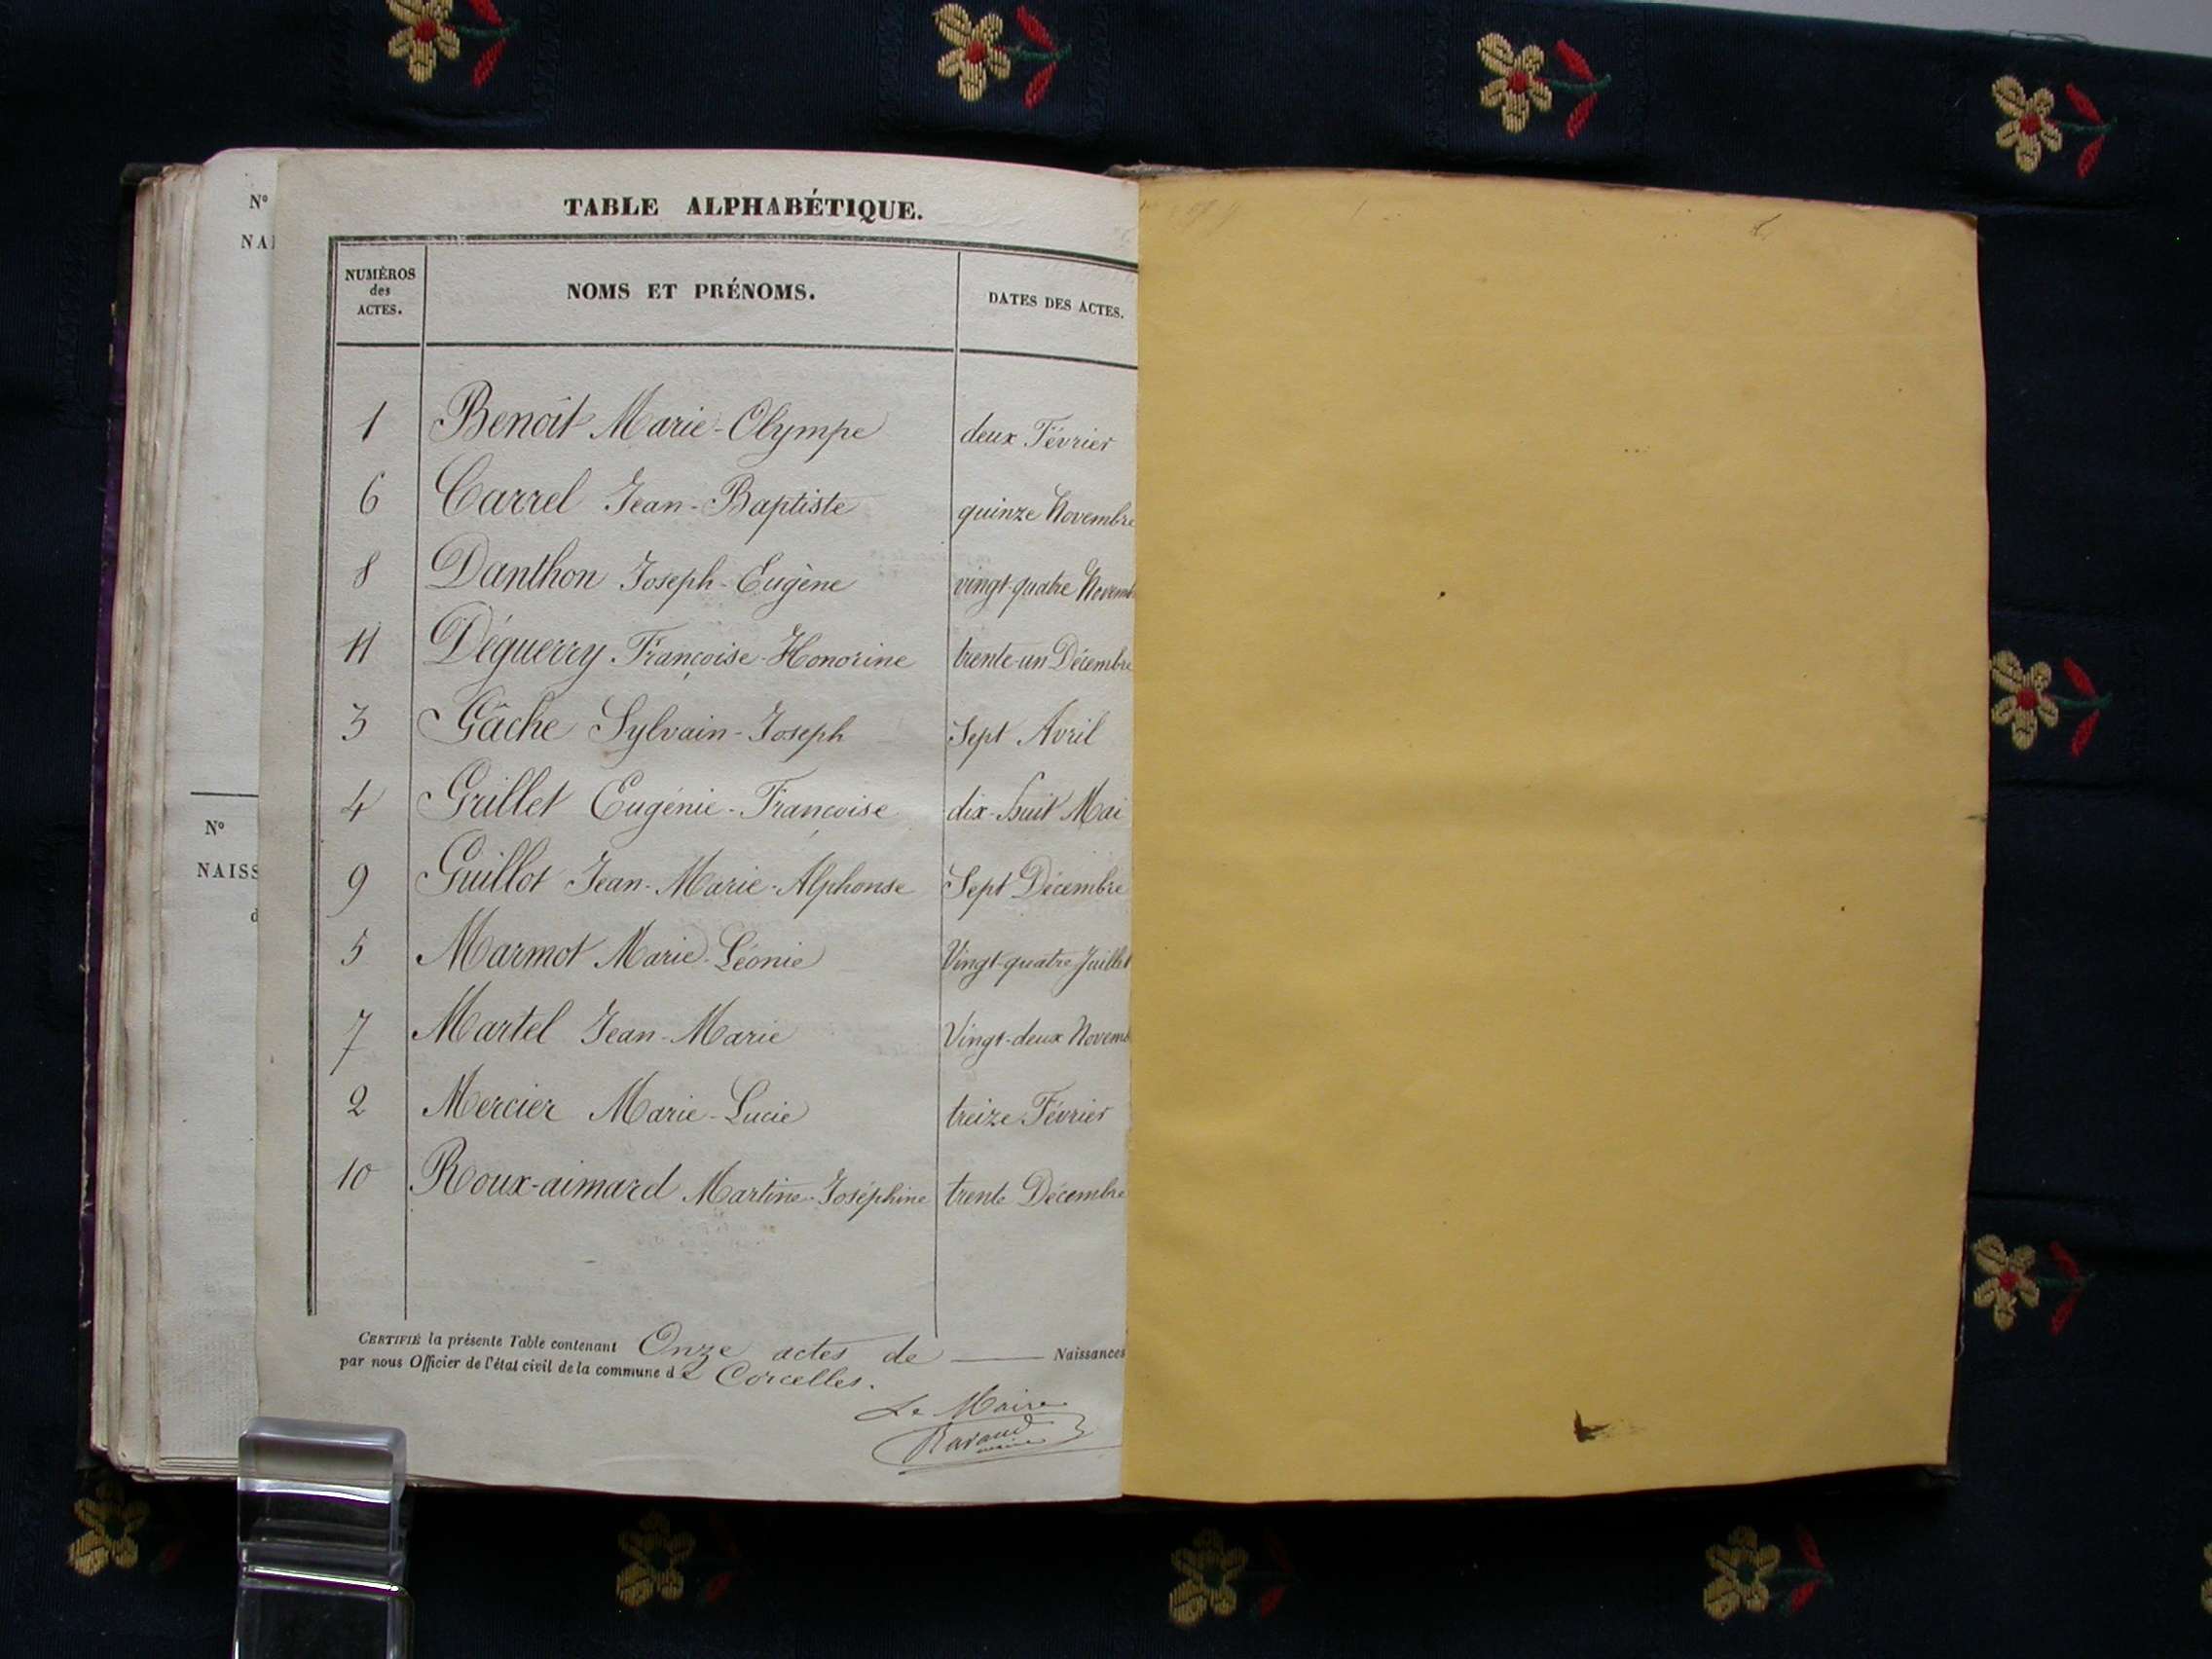 N°
NAI
N°
NAISS
d
TABLE ALPHABÉTIQUE.
NUMÉROS des ACTES. NOMS ET PRÉNOMS. DATES DES ACTES.
1 Benoît Marie-Olympe deux Février
6 Carrel Jean-Baptiste quinze Novembre
8 Danthon Joseph-Eugène vingt-quatre Novemb
11 Déguerry Françoise-Honorine trente-un Décembre
3 Gâche Sylvain-Joseph Sept Avril
4 Grillet Eugénie-Françoise dix-huit Mai
9 Guillot Jean-Marie-Alphonse Sept Décembre
5 Marmot Marie-Léonie Vingt-quatre Juillet
7 Martel Jean-Marie Vingt-deux Novemb
2 Mercier Marie-Lucie treize Février
10 Roux-aimard Martine-Joséphine trente Décembre
CERTIFIÉ la présente Table contenant Onze actes de Naissances
par nous Officier de l'état civil de la commune de Corcelles.
Le Maire